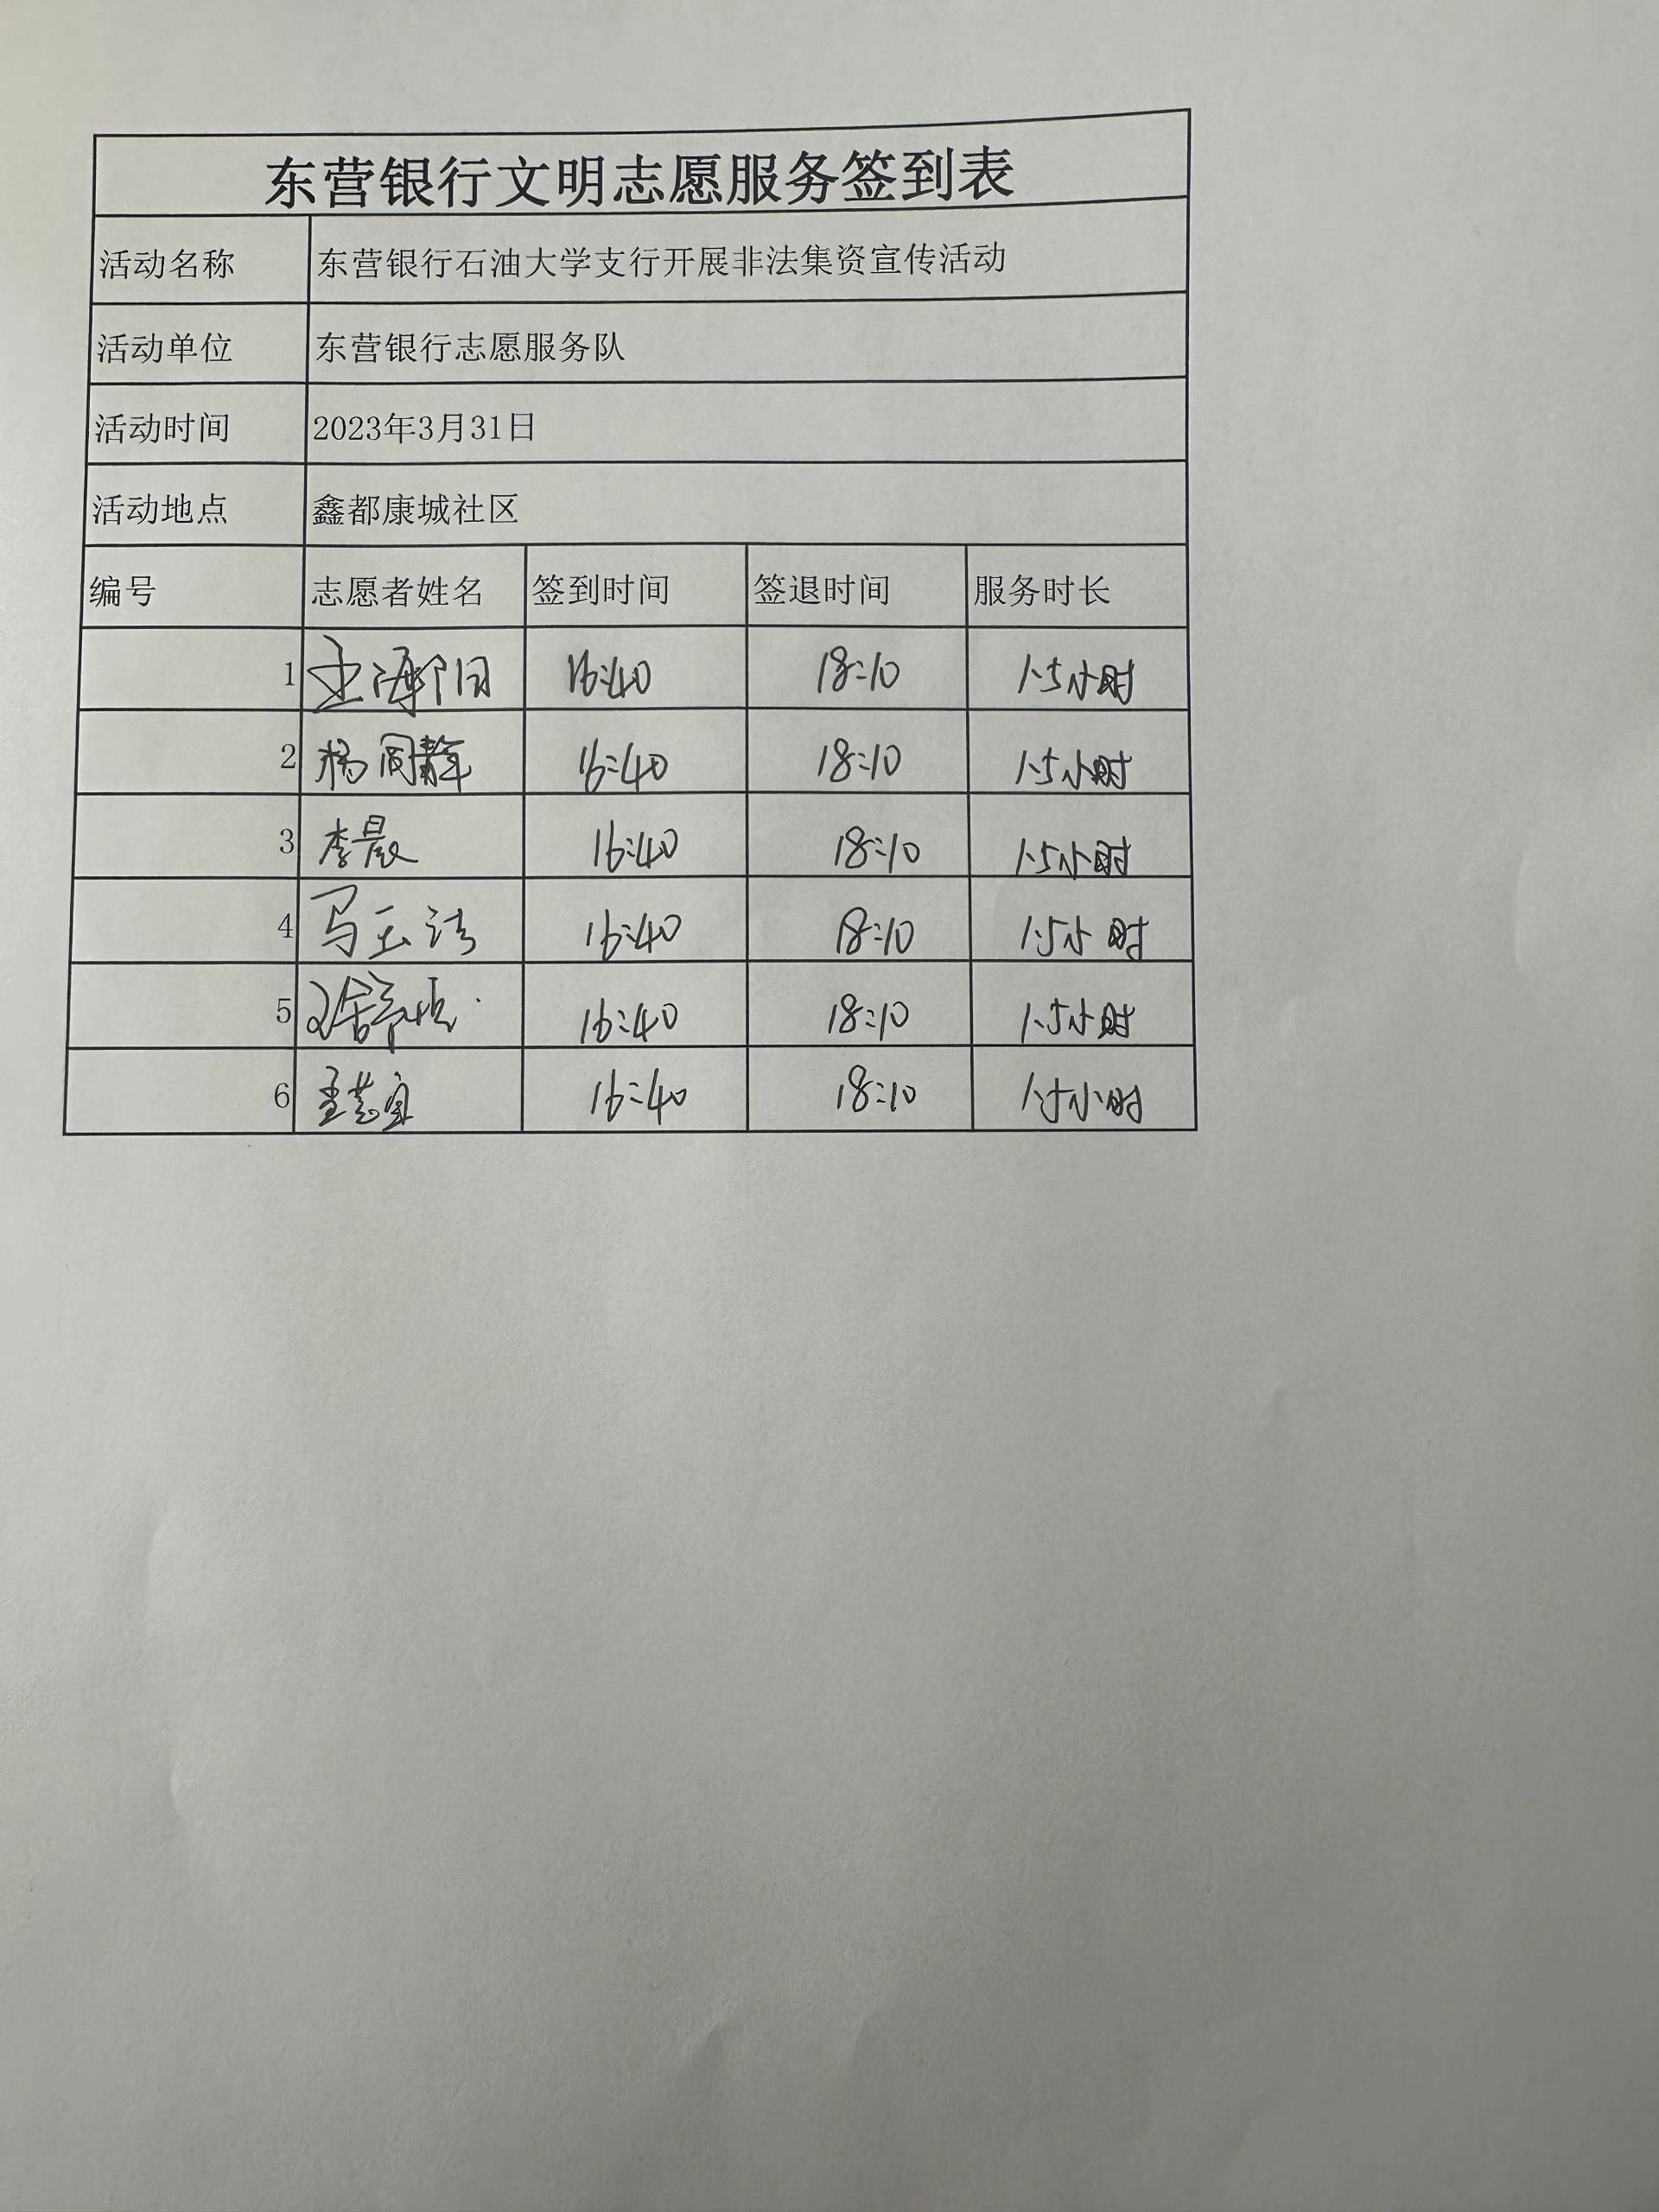 东营银行文明志愿服务签到表
活动名称 东营银行石油大学支行开展非法集资宣传活动
活动单位 东营银行志愿服务队
活动时间 2023年3月31日
活动地点 鑫都康城社区
编号 志愿者姓名 签到时间 签退时间 服务时长
1 16:40 18:10 1.5小时
2 杨 16:40 18:10 1.5小时
3 李晨 16:40 18:10 1.5小时
4 马玉洁 16:40 18:10 1.5小时
5 16:40 18:10 1.5小时
6 16:40 18:10 1.5小时